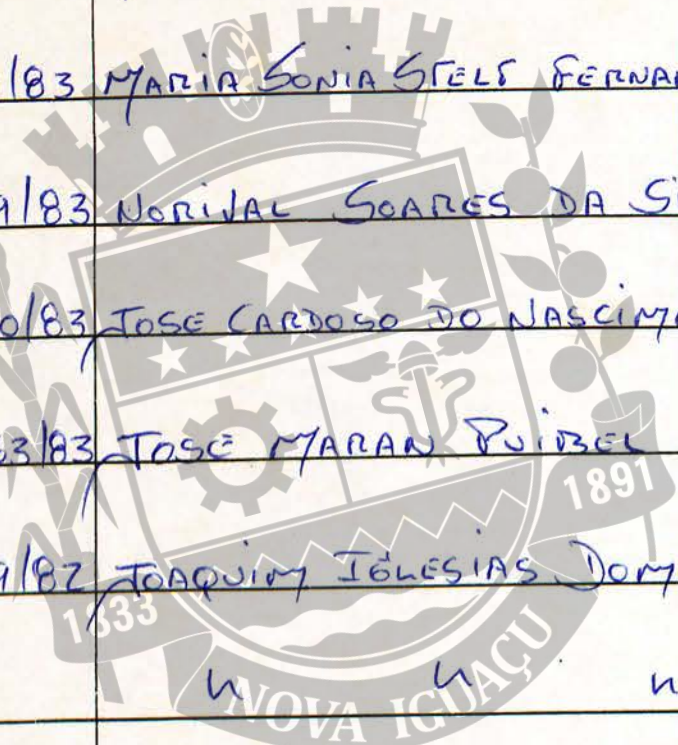 1/83 MARIA SONIA STELT FERNA
9/83 NORIVAL SOARES DA SI
0/83 JOSE CARDOSO DO NASCIM
33/83 JOSE MARAN
1891
9/82 JOAQUIM IGLESIAS DOM
1833
" " "
NOVA IGUAÇU